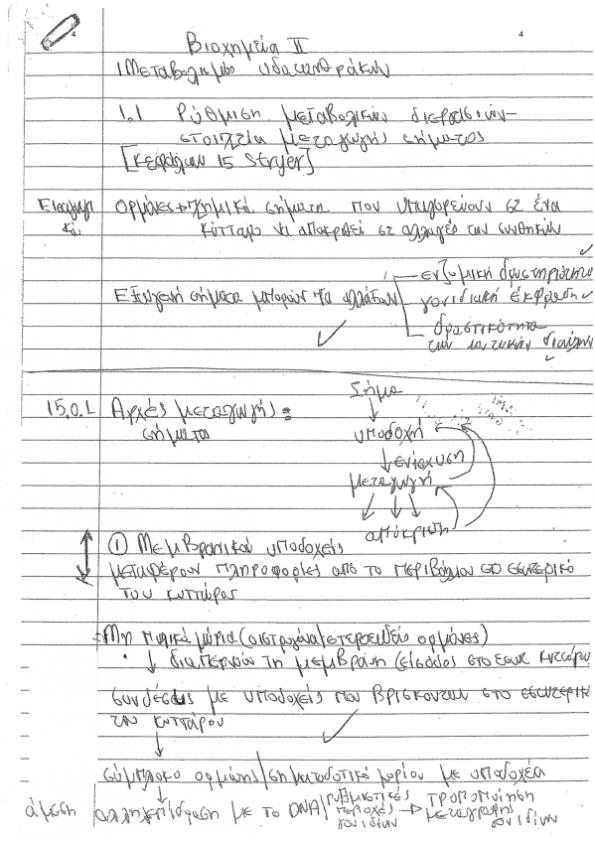 Βιοχημεία ΙΙ
1 Μεταβολισμός υδατανθράκων
1.1 Ρύθμιση μεταβολικών διεργασιών-
στοιχεία μεταγωγής σήματος
[Κεφάλαιο 15 Stryer]
Εισαγωγικά
Ορμόνες → Χημικά σήματα που υπαγορεύουν σε ένα
κύτταρο να αποκριθεί σε αλλαγές των συνθηκών
ενζυμική δραστηριότητα
Εξωγενή σήματα μπορούν να αλλάξουν γονιδιακή έκφραση
δραστικότητα
των ιοντικών διαύλων
Σήμα
15.0.1 Αρχές μεταγωγής =
σήματα
υποδοχή
ενίσχυση
μεταγωγή
απόκριση
① Μεμβρανικοί υποδοχείς
μεταφέρουν πληροφορίες από το περιβάλλον στο εσωτερικό
του κυττάρου
Μη πολικά μόρια (οιστρογόνα/στεροειδείς ορμόνες)
↓ διαπερνούν τη μεμβράνη (είσοδος στο εσωτ κυττάρου
συνδέσεις με υποδοχείς που βρίσκονται στο εσωτερικ
του κυττάρου
↓
σύμπλοκο ορμόνης/σηματοδοτικό μορίου με υποδοχέα
↓
άμεση αλληλεπίδραση με το DNA/ρυθμιστικές περιοχές γονιδίων → τροποποίηση μεταγραφής γονιδίων